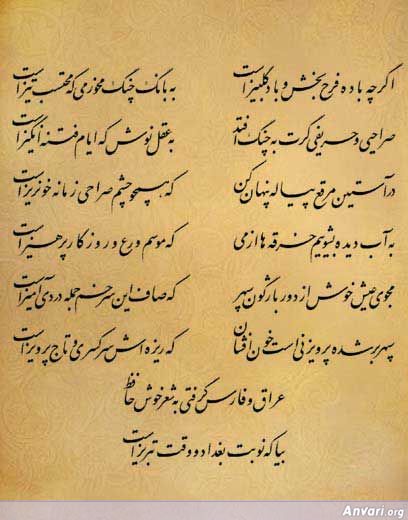 اگرچه باده فرح بخش و باد گلبیز است به بانگ چنگ مخور می که محتسب تیز است
صراحی و حریفی گرت به چنگ افتد به عقل نوش که ایام فتنه انگیز است
در آستین مرقع پیاله پنهان کن که همچو چشم صراحی زمانه خونریز است
به آب دیده بشوییم خرقه ها از می که موسم ورع و روزگار پرهیز است
مجوی عیش خوش از دور باژگون سپهر که صاف این سر خم جمله دردی آمیز است
سپهر بر شده پرویزنی است خون افشان که ریزه اش سر کسری و تاج پرویز است
عراق و فارس گرفتی به شعر خوش حافظ
بیا که نوبت بغداد و وقت تبریز است
Anvari.org